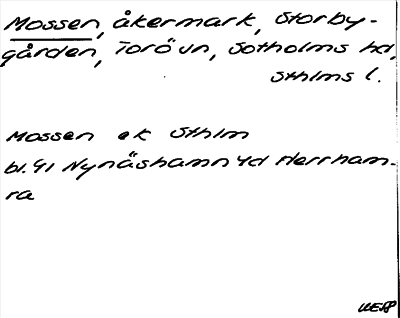 Mossen, åkermark, Storby-
gården, Torö sn, Sotholms hd,
Sthlms l.
Mossen ek Sthlm
bl. 41 Nynäshamn 4d Herrham-
ra